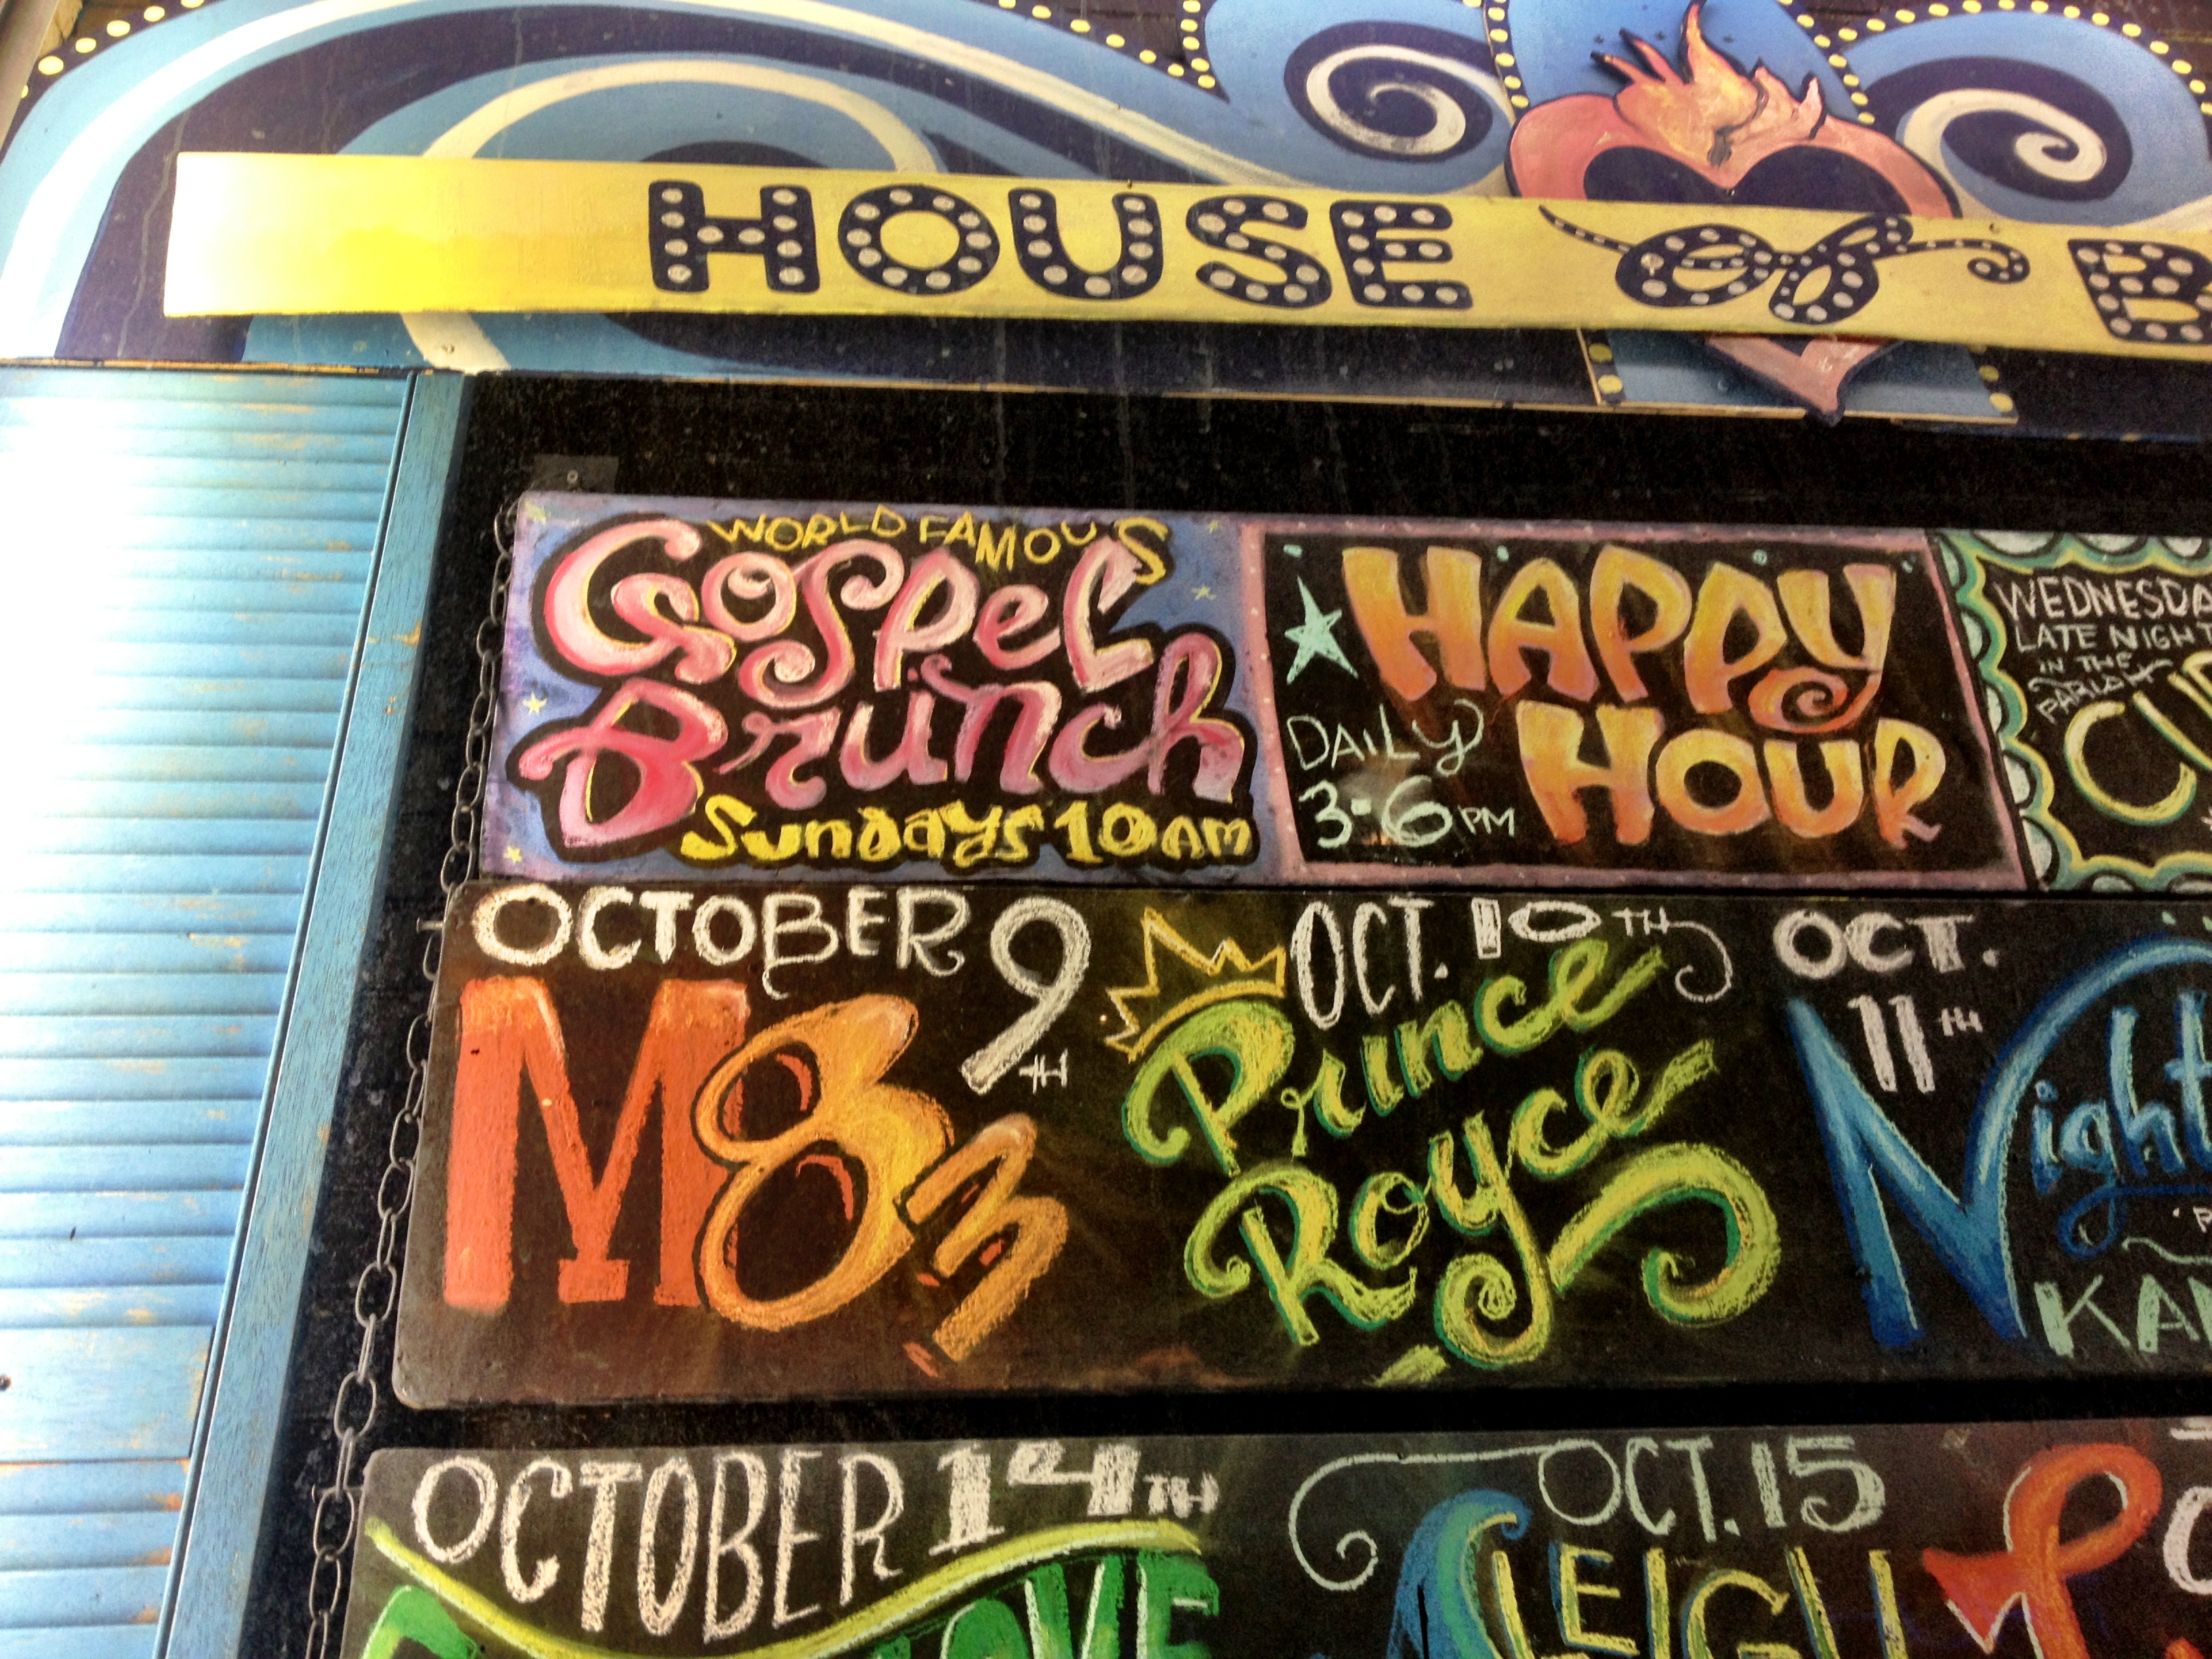 HOUSE of B
WORLD FAMOUS
Gospel
Brunch
Sundays 10AM
HAPPY
HOUR
DAILY
3-6PM
WEDNESDA
LATE NIGHT
IN THE
PARLOR
CU
OCTOBER 9TH
M83
OCT. 10TH
Prince
Royce
OCT.
11TH
Night
KA
OCTOBER 14TH
OVE
OCT. 15
SLEIGH